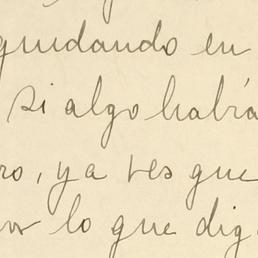 quedando en
si algo había
ro, ya ves que
or lo que dig